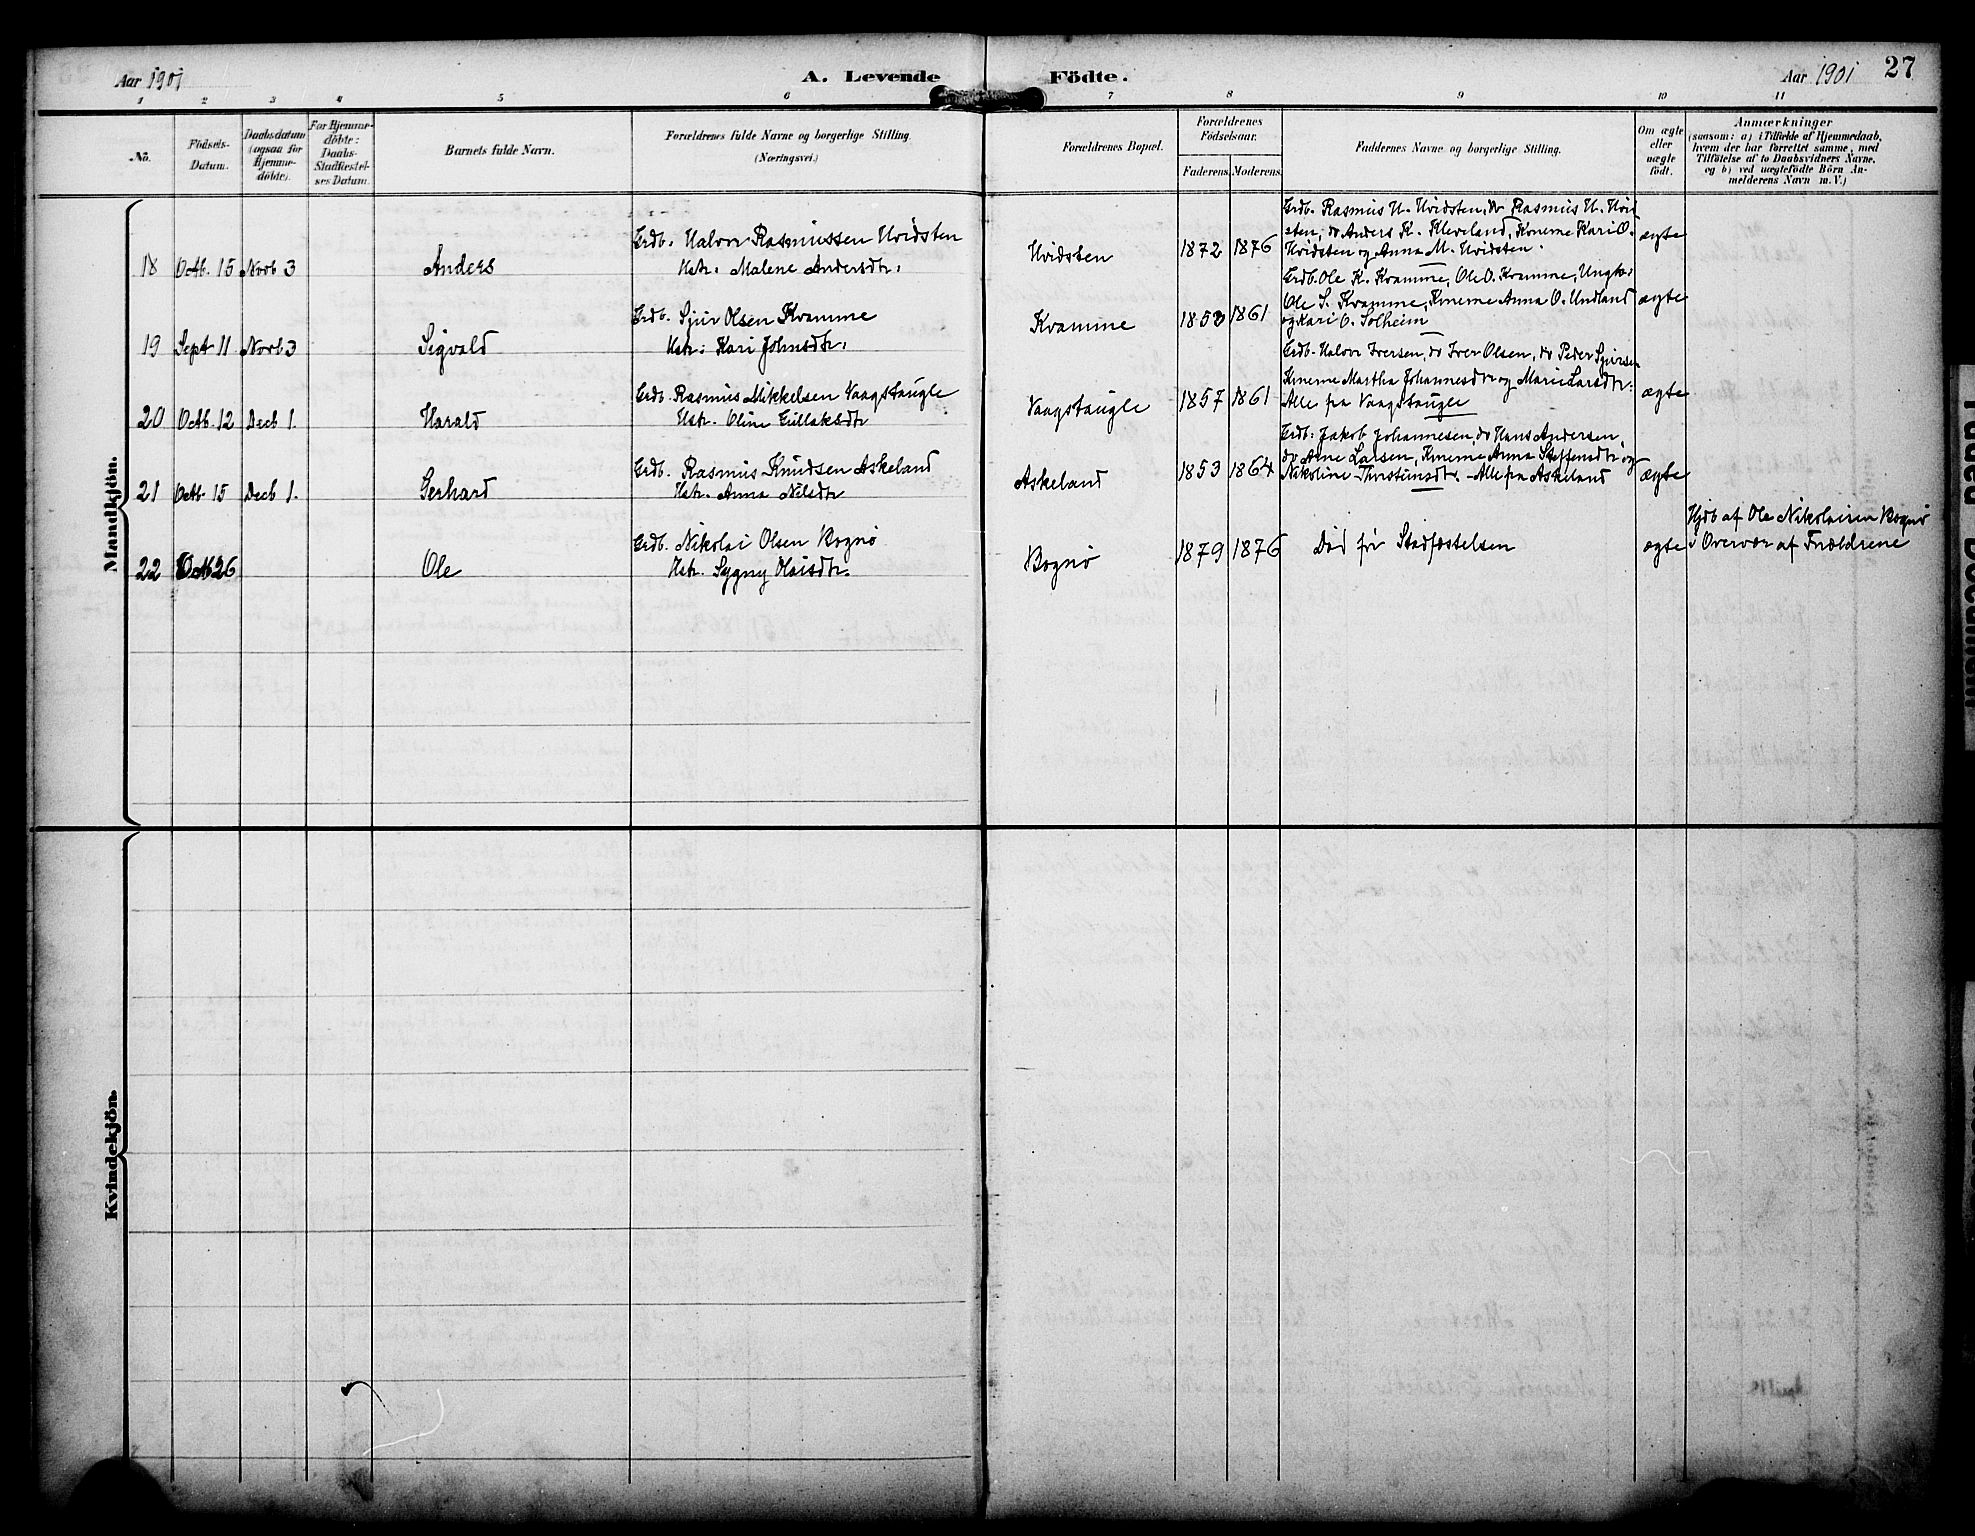 Aar 1901
A. Levende Födte.
Aar 1901 27
1 2 3 4 5 6 7 8 9 10 11
No.
Födsels-
Datum.
Daabsdatum
(ogsaa for
Hjemme-
döbte).
For Hjemme-
döbte:
Daabs-
Stadfæstel-
ses Datum.
Barnets fulde Navn.
Forældrenes fulde Navne og borgerlige Stilling.
(Næringsvei.)
Forældrenes Bopæl.
Forældrenes
Födselsaar.
Faderens. Moderens.
Faddernes Navne og borgerlige Stilling.
Om ægte
eller
uægte
födt.
Anmærkninger
(saasom: a) i Tilfælde af Hjemmedaab,
hvem der har forrettet samme, med
Tilföielse af to Daabsvidners Navne,
og b) ved uægtefödte Börn An-
melderens Navn m. V.)
Mandkjön.
18 Octb. 15 Novb 3 Anders
Grdb. Halvor Rasmussen Hvidsten
Hstr. Malene Andersdtr.
Hvidsten 1872 1876
Grdb. Rasmus H. Hvidsten, do Rasmus H. Hvid
sten, do Anders K. Kleveland, Konerne Kari O.
Hvidsten og Anna M. Hvidsten.
ægte
19 Sept 11 Novb 3 Sigvald
Grdb. Sjur Olsen Kvamme
Hstr: Kari Johnsdtr.
Kvamme 1853 1861
Grdb. Ole K. Kvamme, Ole O. Kvamme, Ungk:
Ole S. Kvamme, Knerne Anna O. Undland
og Kari O. Solheim
ægte
20 Octb. 12 Decb 1. Harald
Grdb. Rasmus Mikkelsen Vaagstaugle
Hstr. Oline Gullaksdtr
Vaagstaugle 1857 1861
Grdb. Halvor Iversen, do Iver Olsen, do Peder Sjursen
Knerne Martha Johannesdtr og Marie Larsdtr:
Alle fra Vaagstaugle
ægte
21 Octb. 15 Decb 1. Gerhard
Grdb. Rasmus Knudsen Askeland
Hstr. Anna Nilsdtr
Askeland 1853 1864
Grdb: Jakob Johannesen, do Hans Andersen,
do Arne Larsen, Knerne Anna Steffensdtr og
Nikoline Thorsteinsdtr. - Alle fra Askeland
ægte
22 Octb 26 Ole
Grdb. Nikolai Olsen Bognø
Hstr. Sygny Olaisdtr.
Bognø 1879 1876
Død før Stadfæstelsen
ægte
Hjdb af Ole Nikolaisen Bognø
i Overvær af Forældrene
Kvindekjön.